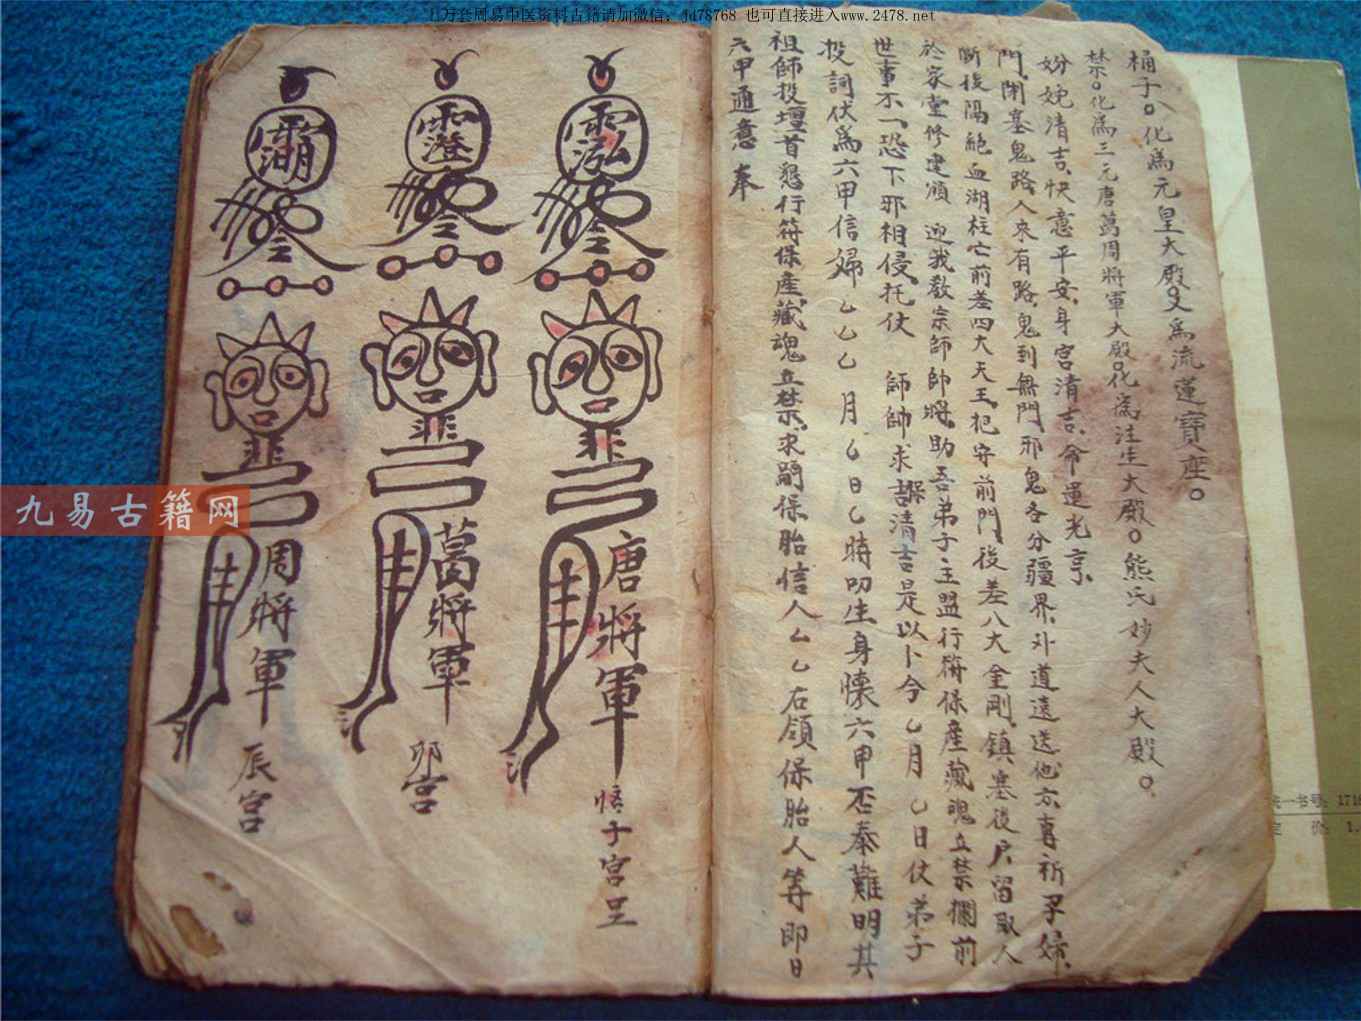 上万套周易中医资料古籍请加微信:jd78768 也可直接进入www.2478.net
桶子。化為元皇大殿。又為流蓮寶座。
禁。化為三元唐葛周將軍大殿。化為注生大殿。熊氏妙夫人大殿。
分娩清吉、快意平安、身宮清吉、命運光亨、
門、閉塞鬼路、人來有路、鬼到無門、邪鬼各分疆界、外道遠送他方、專祈孕婦、
斷後隔絕血湖枉亡前差四大天王、把守前門、後差八大金剛、鎮塞後戶、留取人
於家堂修建順 迎我教宗師帥將、助吾弟子主盟行符保產藏魂立禁攔前
世事不一、恐下邪相侵、托仗 師帥求保清吉是以卜今乙月 乙日仗弟子
投詞伏為六甲信婦乙乙乙 月乙日乙時叩生身懷六甲否泰難明其
祖師投壇首懇行符保產、藏魂立禁、求嗣保胎信人乙乙右領保胎人等即日
六甲通意奉
唐將軍
悟子宮
葛將軍
卯宮
周將軍
辰宮
九易古籍网
统一书号:1710
定 价: 1.